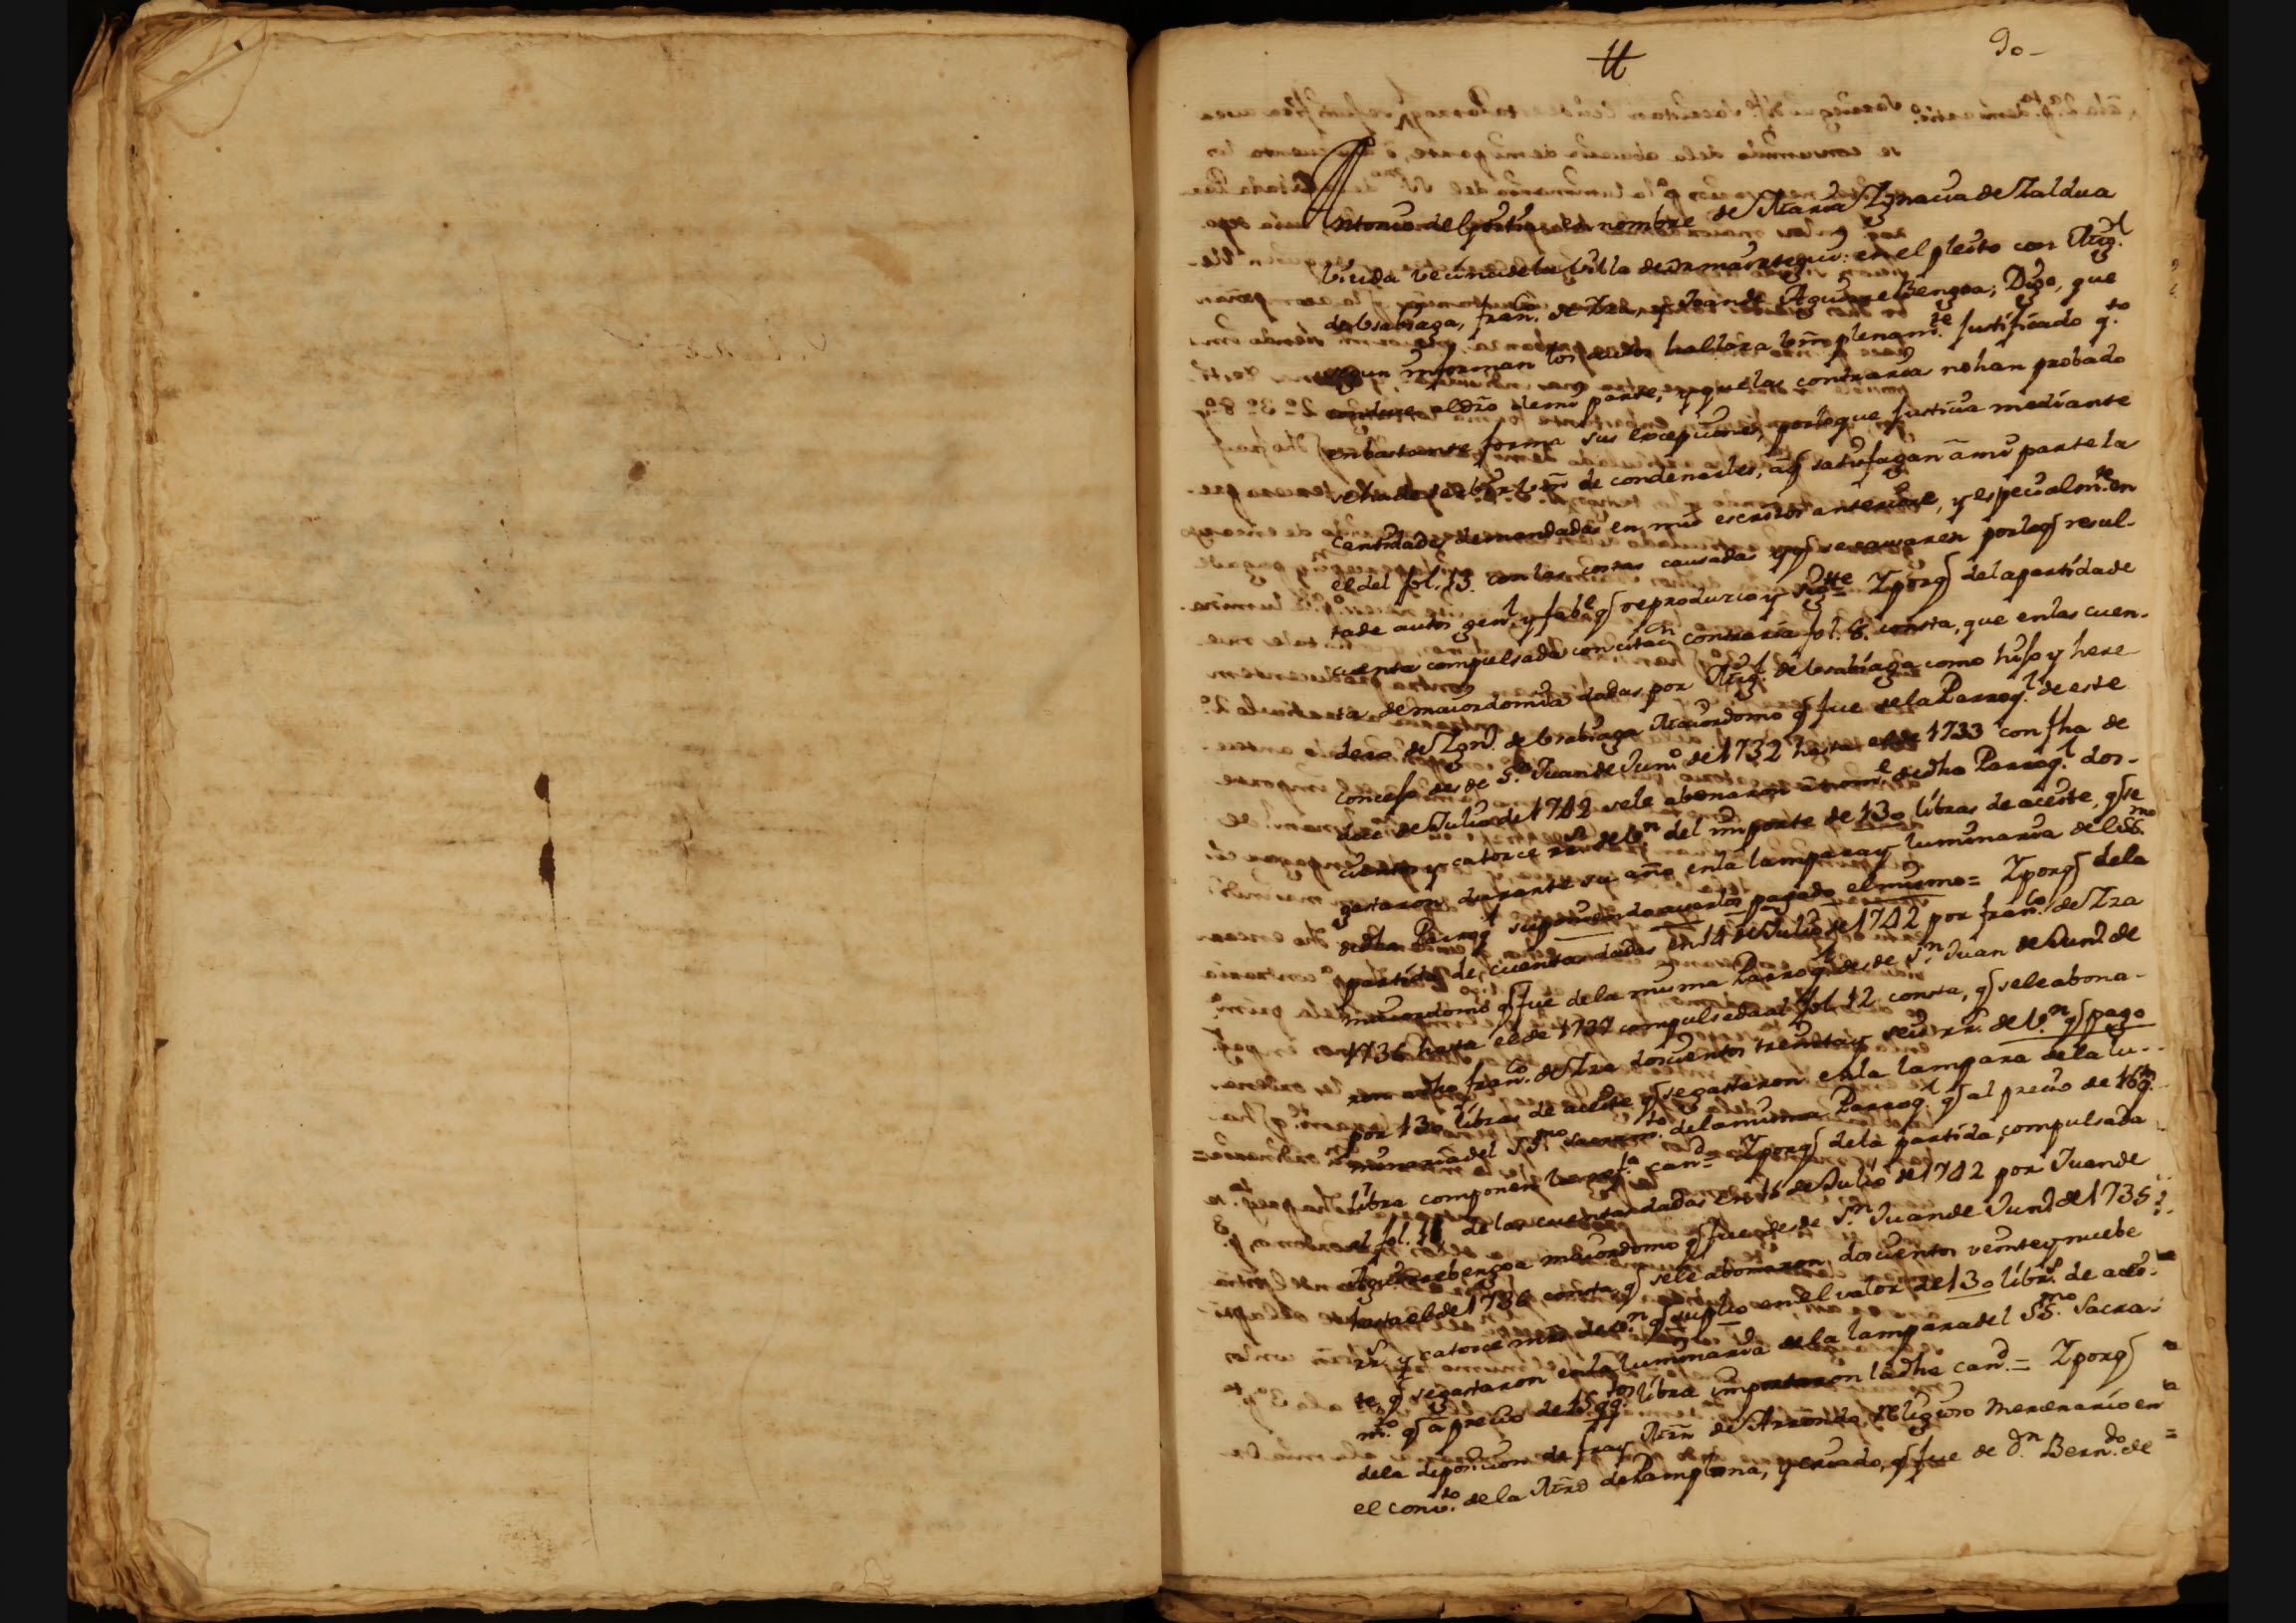 90-
Antonio del Postigo en nombre de Maria Ygnacia de Zaldua
biuda vecina de la villa de Urmaiztegui: en el pleito con Mig.l
de Usabiaga, fran.co de Yza, y Joan de Aguirrebengoa; Digo, que
segun informan los autos hallara Vm̃ plenam.te justificado q.to
conduce al dr̃o de mi parte, y que las contrarias no han probado
en bastante forma sus excepciones, por lo que justicia mediante
se ha de servir Vm̃ de condenarles, a q̃ satisfagan a mi parte la
cantidades demandadas en mis escritos anteriores, y especialm.te en
el del fol. 13. con las costas causadas y q̃ se causaren por lo q̃ resul-
ta de autos gen.l y fab.e q̃ reproduzco y sig.te = Y porq̃ de la partida de
cuenta compulsada con citac.n contraria fol. 8. consta, que en las cuen-
tas de maiordomia dadas por Mig.l de Usabiaga como hijo y here-
dero de Ygn.o de Usabiaga Maiordomo q̃ fue de la Parroq.l de este
concejo desde S.n Juan de Jun.o de 1732 hasta el de 1733 con fha de
doce de Julio de 1742 se le abonaron de dha Parroq.l dos-
cientos y catorce rr.s de v.n del importe de 130 libras de aceite, q̃ se
gastaron durante su año en la lampara y luminaria del SS.mo
de dha Parroq.l suponiendo averlos pagado el mismo = Y porq̃ de la
partida de cuentas dadas en 14 de Julio de 1742 por fran.co de Yza
maiordomo q̃ fue de la misma Parroq.l desde S.n Juan de Jun.o de
1736 hasta el de 1737 compulsada al fol. 12 consta, q̃ se le abona-
ron a dho fran.co de Yza doscientos treinta y seis rr.s de v.n q̃ pago
por 130 libras de aceite q̃ se gastaron en la lampara de la lu-
minaria del SS.mo Sacram.to de la misma Parroq.l q̃ al precio de 16 q.tos
libra componen la ref.a cant.d = Y porq̃ de la partida, compulsada
al fol. 11 de las cuentas dadas en 16 de Julio de 1742 por Juan de
Aguirrebengoa maiordomo q̃ fue desde S.n Juan de Jun.o de 1735
hasta el de 1736 consta, q̃ se le abonaron doscientos veinte y nuebe
rr.s y catorce mrs de v.n q̃ suplio en el valor de 130 libr.s de acei-
te, q̃ se gastaron en la luminaria de la lampara del SS.mo Sacra-
m.to q̃ a precio de 15 qq.tos libra importaron la dha cant.d = Y porq̃
de la deposicion de fray Mr̃n de Arrondo religioso Mercenario en
el conv.to de la Mr̃d de Pamplona, y criado, q̃ fue de D.n Bern.do de